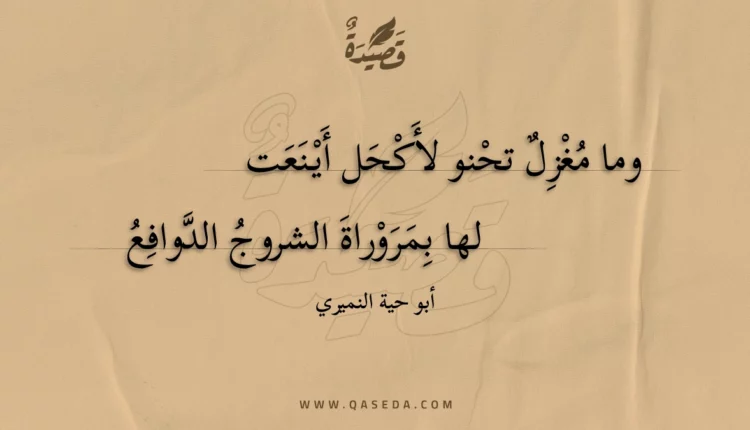 قَصِيْدَةٌ
وما مُغْزِلٌ تحْنو لأَكْحَل أَيْنَعَت
لها بِمَرَوْراةَ الشروجُ الدَّوافِعُ
أبو حية النميري
WWW.QASEDA.COM